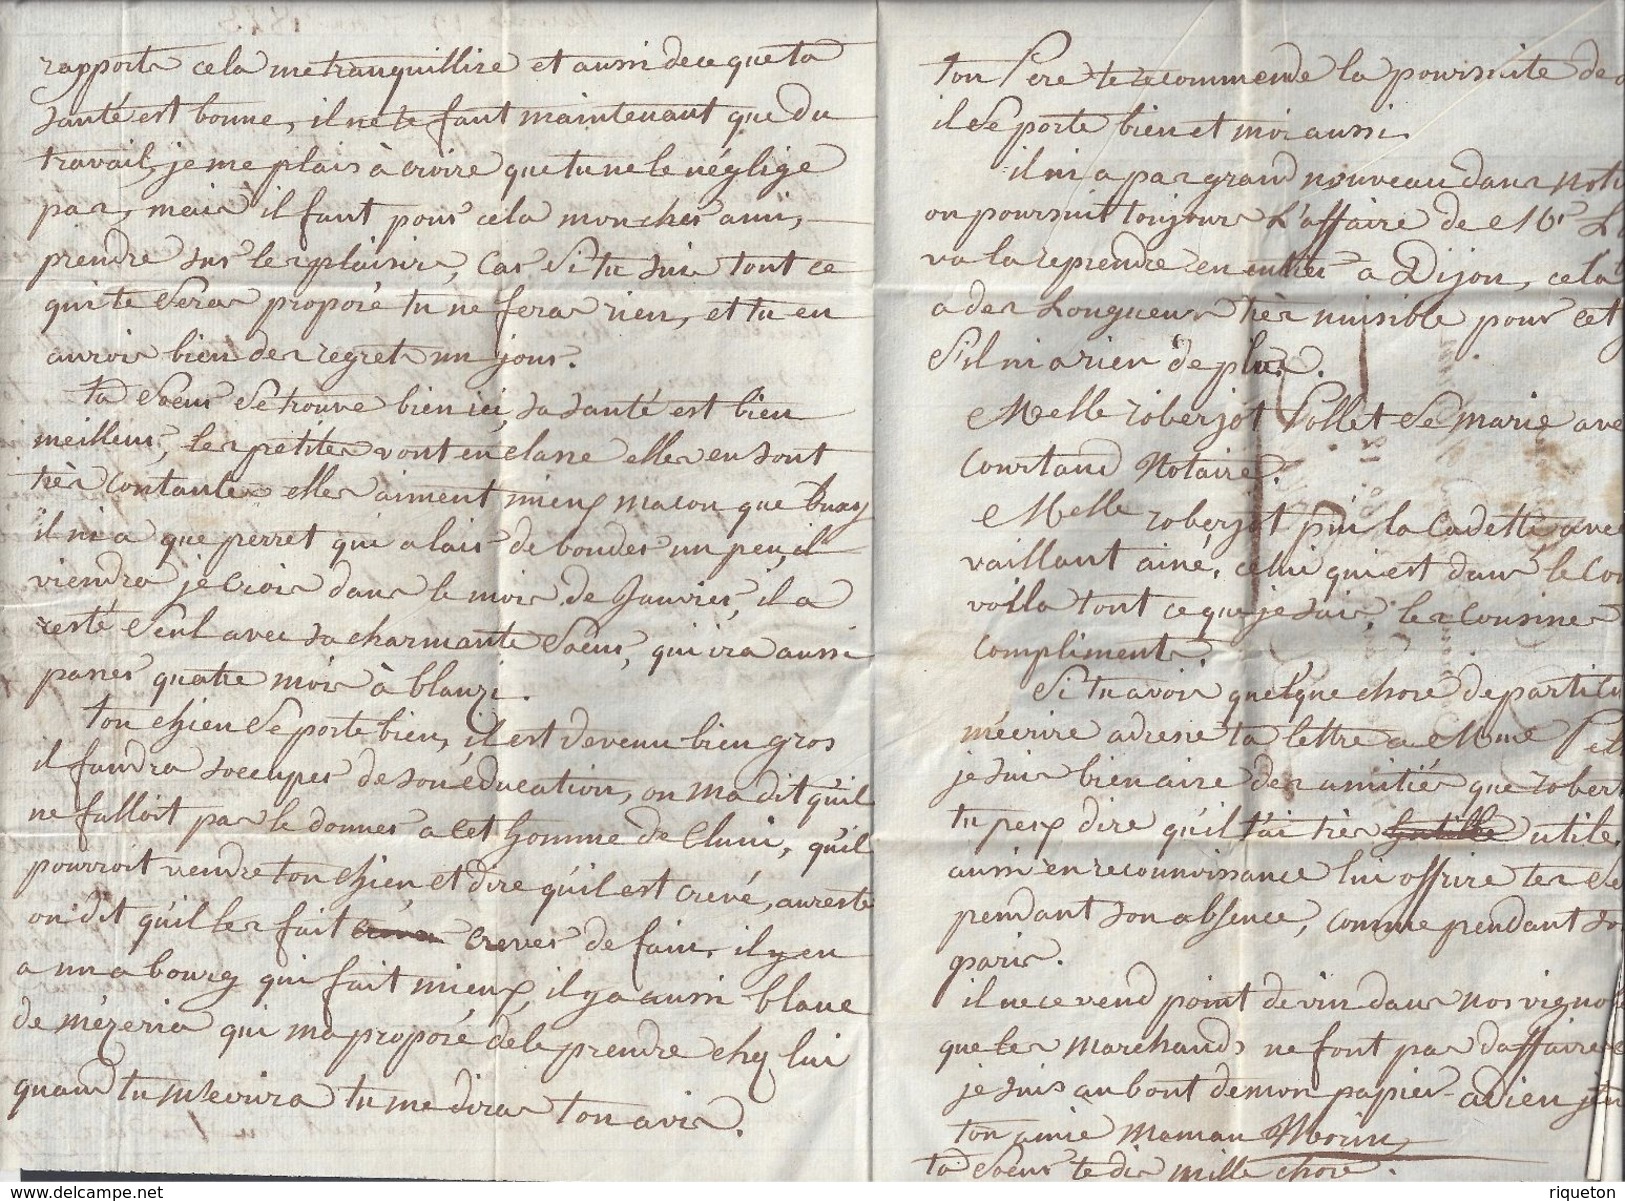 rapporte cela me tranquillise et aussi de ce que ta
santé est bonne, il ne te faut maintenant que du
travail, je me plais à croire que tu ne le néglige
pas, mais il faut pour cela mon cher ami,
prendre sur les plaisirs, Car Si tu suis tout ce
qui te Sera proposé tu ne feras rien, et tu en
aurois bien des regrets un jour.
ta Soeur Se trouve bien ici, sa santé est bien
meilleur, les petites vont en classe elles en sont
très contantes elles aiment mieux macon que buxy
il ni a que perret qui alais de bouder un peu, il
viendra je crois dans le mois de Janvier, il a
resté Seul avec sa charmante Soeur, qui ira aussi
passer quatre mois à blanzi.
ton chien Se porte bien, il est devenu bien gros
il faudra soccuper de son éducation, on ma dit qu'il
ne falloit pas le donner a cet homme de Cluni, qu'il
pourroit vendre ton chien et dire qu'il est crevé, au reste
on dit qu'il les fait crever de faim, il y en
a un a bourg qui fait mieux, il y a aussi blanc
de mézeria qui ma proposé de le prendre chez lui
quand tu mecrira tu me diras ton avis.
ton Pere te recommende la poursuite de
il Se porte bien et moi aussi.
il ni a pas grand nouveau dans notr
on poursuit toujours L'affaire de Mr
va la reprendre en entier a Dijon, cela
a des Longueurs très nuisible pour cet
S'il ni a rien de plus.
Melle roberjot Pollet Se marie ave
Courtand Notaire.
Melle roberjot pin la Cadette, avec
vaillant ainé, celui qui est dans le Con
voila tout ce que je sais, les Cousines
compliments.
Si tu avois quelque chose de particu
mécrire adresse ta lettre a Mme Pet
je suis bien aise des amitiés que rober
tu peux dire qu'il t'ai très utile,
aussi en reconnoissance lui offrire tes Se
pendant son absence, comme pendant so
paris.
il ne ce vend point de vin dans nos vignob
que les marchands ne font pas daffaires
je suis au bout de mon papier adieu
ton amie Maman Morin
ta Soeur te dis mille chose.
riqueton
© www.delcampe.net